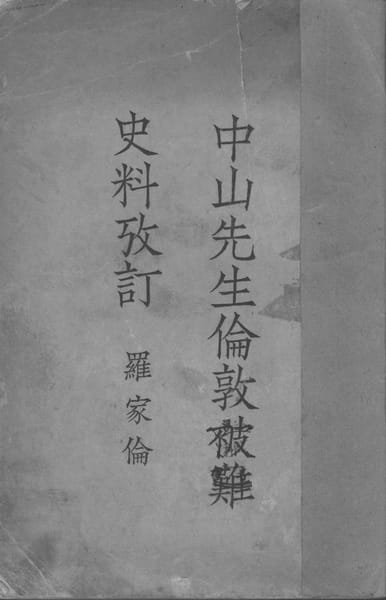 中山先生倫敦被難
史料攷訂
羅家倫